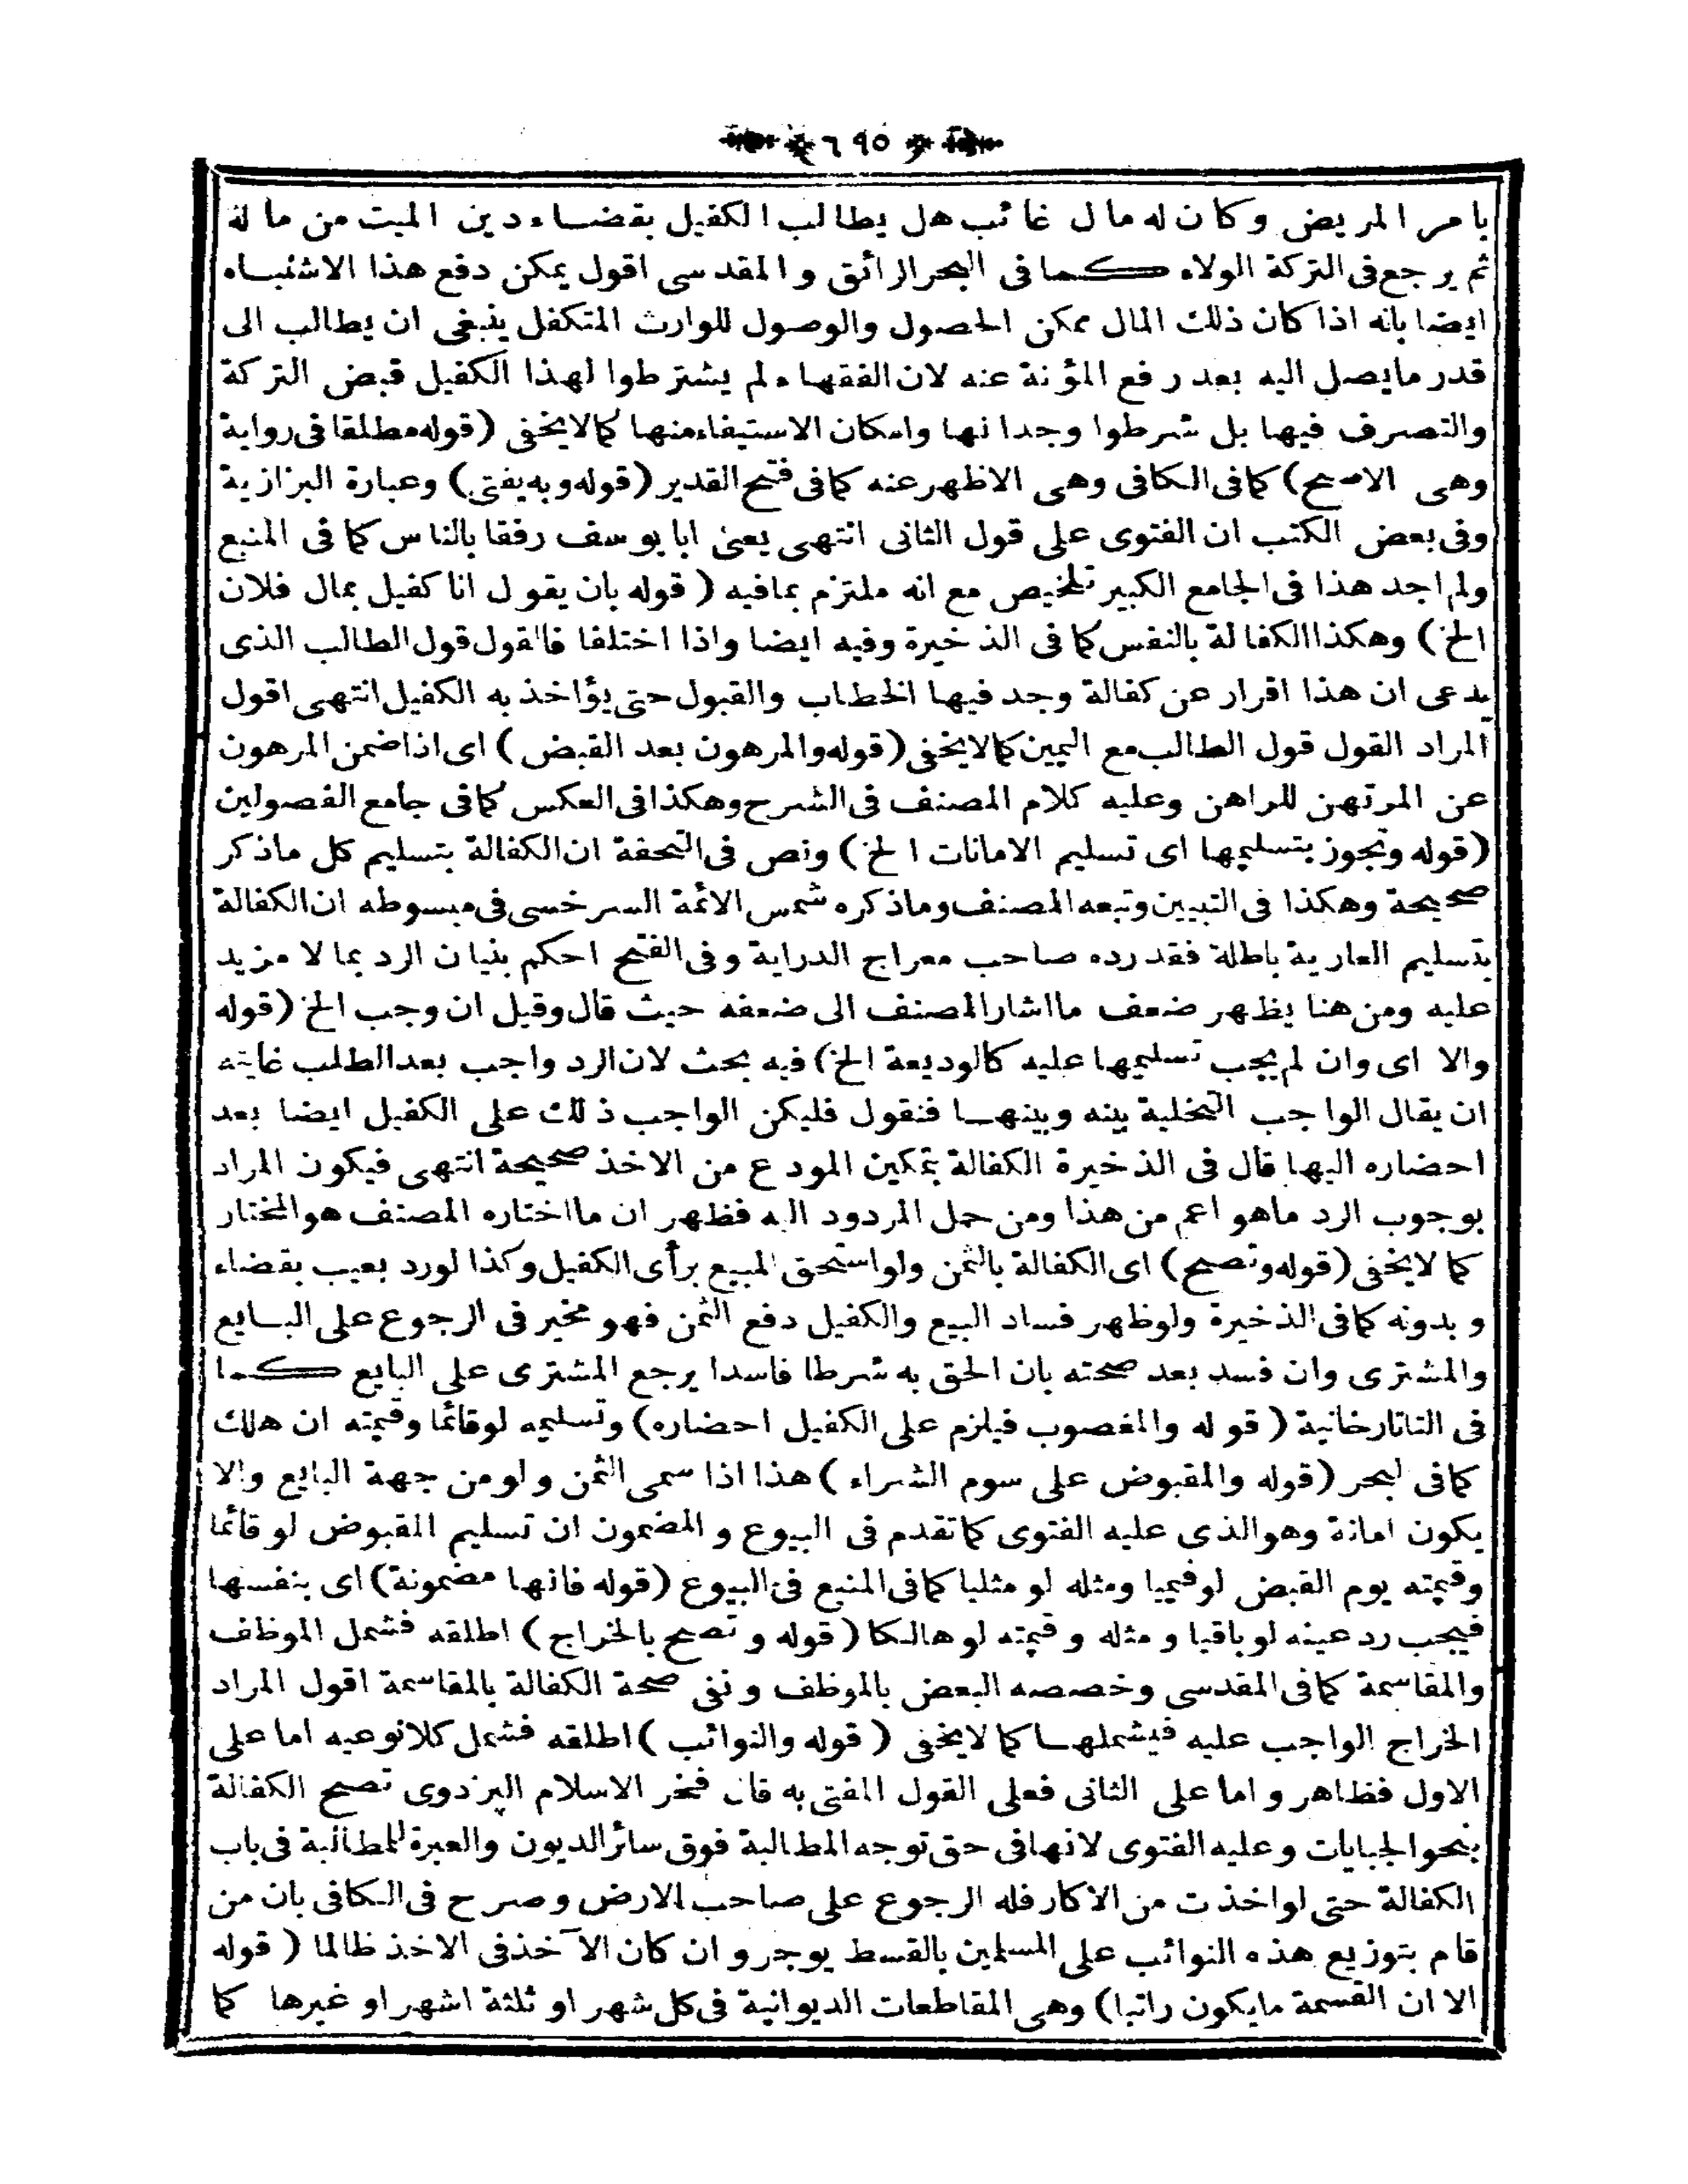 ٦٩٥
بامر المريض وكان له مال غائب هل يطالب الكفيل بقضاء دين الميت من ماله
ثم يرجع فى التركة الولاء كما فى البحر الرائق والمقدسى اقول يمكن دفع هذا الاشتباه
ايضا بانه اذا كان ذلك المال ممكن الحصول والوصول للوارث المتكفل ينبغى ان يطالب الى
قدر ما يصل اليه بعد رفع المؤنة عنه لان الفقهاء لم يشترطوا لهذا الكفيل قبض التركة
والتصرف فيها بل شرطوا وجدانها وامكان الاستيفاء منها كما لا يخفى (قوله مطلقا فى رواية
وهى الاصح) كما فى الكافى وهى الاظهر عنه كما فى فتح القدير (قوله وبه يفتى) وعبارة البزازية
وفى بعض الكتب ان الفتوى على قول الثانى انتهى يعنى ابا يوسف رفقا بالناس كما فى المنبع
ولم اجد هذا فى الجامع الكبير تلخيص مع انه ملتزم بمافيه (قوله بان يقول انا كفيل بمال فلان
الخ) وهكذا الكفالة بالنفس كما فى الذخيرة وفيه ايضا واذا اختلفا فالقول قول الطالب الذى
يدعى ان هذا اقرار عن كفالة وجد فيها الخطاب والقبول حتى يؤاخذ به الكفيل انتهى اقول
المراد القول قول الطالب مع اليمين كما لا يخفى (قوله والمرهون بعد القبض) اى اذا ضمن المرهون
عن المرتهن للراهن وعليه كلام المصنف فى الشرح وهكذا فى العكس كما فى جامع الفصولين
(قوله وتجوز بتسليمها اى تسليم الامانات الخ) ونص فى التحفة ان الكفالة بتسليم كل ماذكر
صحيحة وهكذا فى التبيين وتبعه المصنف وماذكره شمس الائمة السرخسى فى مبسوطه ان الكفالة
بتسليم العارية باطلة فقد رده صاحب معراج الدراية وفى الفتح احكم بنيان الرد بما لا مزيد
عليه ومن هنا يظهر ضعف ما اشار المصنف الى ضعفه حيث قال وقيل ان وجب الخ (قوله
والا اى وان لم يجب تسليمها عليه كالوديعة الخ) فيه بحث لان الرد واجب بعد الطلب غايته
ان يقال الواجب التخلية بينه وبينها فنقول فليكن الواجب ذلك على الكفيل ايضا بعد
احضاره اليها قال فى الذخيرة الكفالة بتمكين المودع من الاخذ صحيحة انتهى فيكون المراد
بوجوب الرد ماهو اعم من هذا ومن حمل المردود اليه فظهر ان ما اختاره المصنف هو المختار
كما لا يخفى (قوله وتصح) اى الكفالة بالثمن ولو استحق المبيع برأى الكفيل وكذا لورد بعيب بقضاء
وبدونه كما فى الذخيرة ولوظهر فساد البيع والكفيل دفع الثمن فهو مخير فى الرجوع على البايع
والمشترى وان فسد بعد صحته بان الحق به شرطا فاسدا يرجع المشترى على البايع كما
فى التاتارخانية (قوله والمغصوب فيلزم على الكفيل احضاره) وتسليمه لوقائما وقيمته ان هلك
كما فى البحر (قوله والمقبوض على سوم الشراء) هذا اذا سمى الثمن ولومن جهة البايع والا
يكون امانة وهو الذى عليه الفتوى كما تقدم فى البيوع والمضمون ان تسليم المقبوض لو قائما
وقيمته يوم القبض لوقيميا ومثله لو مثليا كما فى المنبع فى البيوع (قوله فانها مضمونة) اى بنفسها
فيجب رد عينه لوباقيا ومثله وقيمته لو هالكا (قوله وتصح بالخراج) اطلقه فشمل الموظف
والمقاسمة كما فى المقدسى وخصصه البعض بالموظف ونفى صحة الكفالة بالمقاسمة اقول المراد
الخراج الواجب عليه فيشملها كما لا يخفى (قوله والنوائب) اطلقه فشمل كلانوعيه اما على
الاول فظاهر واما على الثانى فعلى القول المفتى به قال فخر الاسلام البزدوى تصح الكفالة
بنحو الجبايات وعليه الفتوى لانها فى حق توجه المطالبة فوق سائر الديون والعبرة للمطالبة فى باب
الكفالة حتى لواخذت من الاكار فله الرجوع على صاحب الارض وصرح فى الكافى بان من
قام بتوزيع هذه النوائب على المسلمين بالقسط يوجر وان كان الآخذ فى الاخذ ظالما (قوله
الا ان القسمة مايكون راتبا) وهى المقاطعات الديوانية فى كل شهر او ثلثة اشهر او غيرها كما